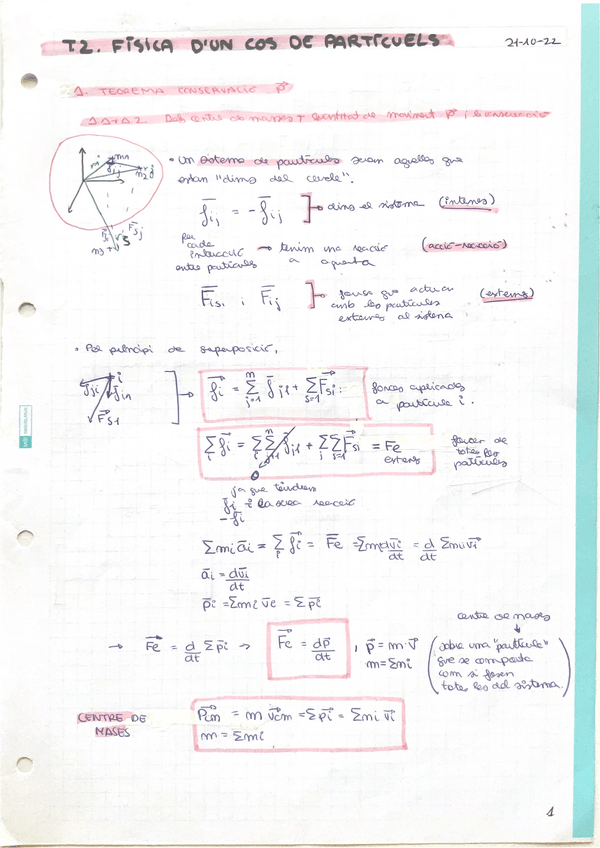 T.2. FÍSICA D'UN COS DE PARTÍCUELS 21-10-22
1. TEOREMA CONSERVACIÓ p⃗
1.1 + 1.2. centre de masses + quantitat de moviment p⃗ i la conservació
• Un sistema de partícules seran aquelles que
estan "dins del cercle".
f⃗ij = - f⃗ij → dins el sistema (internes)
per cada interacció entre partícules → tenim una reacció a aquesta (acció-reacció)
F⃗is, i F⃗ij → forces que actuen amb les partícules externes al sistema (externs)
• Pel principi de superposició,
f⃗i = Σ f⃗j1 + Σ F⃗si forces aplicades
a partícula i.
Σ f⃗i = Σ Σ f⃗j1 + Σ Σ F⃗si = Fe extern
forces de totes les partícules
0
ja que tindrem
fi i la seva reacció
-fi
Σmi a⃗i = Σ f⃗i = F⃗e = Σmi dv⃗i/dt = d/dt Σmi v⃗i
a⃗i = dv⃗i/dt
p⃗i = Σmi v⃗i = Σp⃗i
centre de masses
→ F⃗e = d/dt Σp⃗i → F⃗e = dp⃗/dt , p⃗ = m·v⃗
m = Σmi
(sobre una "partícula"
que se comporta
com si fossen
totes les del sistema.)
CENTRE DE
MASES
P⃗cm = m v⃗cm = Σp⃗i = Σmi v⃗i
m = Σmi
1